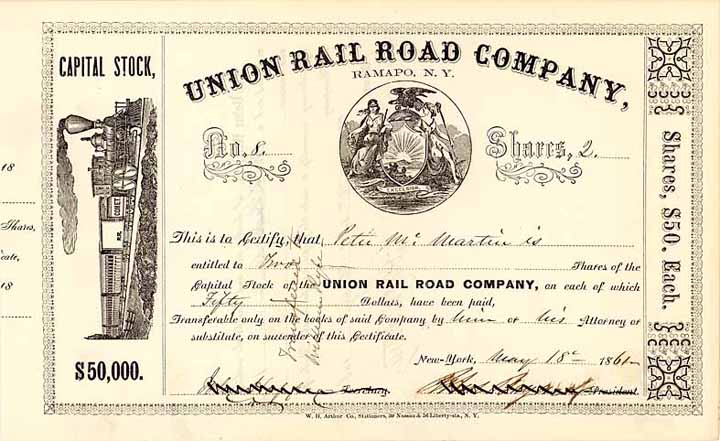 18
Shares,
18
CAPITAL STOCK,
$50,000.
UNION RAIL ROAD COMPANY,
RAMAPO, N. Y.
No. 8. Shares, 2.
EXCELSIOR
This is to Certify, that Peter Mc Martin is
entitled to Two Shares of the
Capital Stock of the UNION RAIL ROAD COMPANY, on each of which
Fifty Dollars, have been paid,
Transferable only on the books of said Company by him or his Attorney or
substitute, on surrender of this Certificate.
New-York, May 18 186
Secretary. President.
W. H. Arthur Co., Stationers, 39 Nassau & 56 Liberty-sts., N. Y.
Shares, $50. Each.